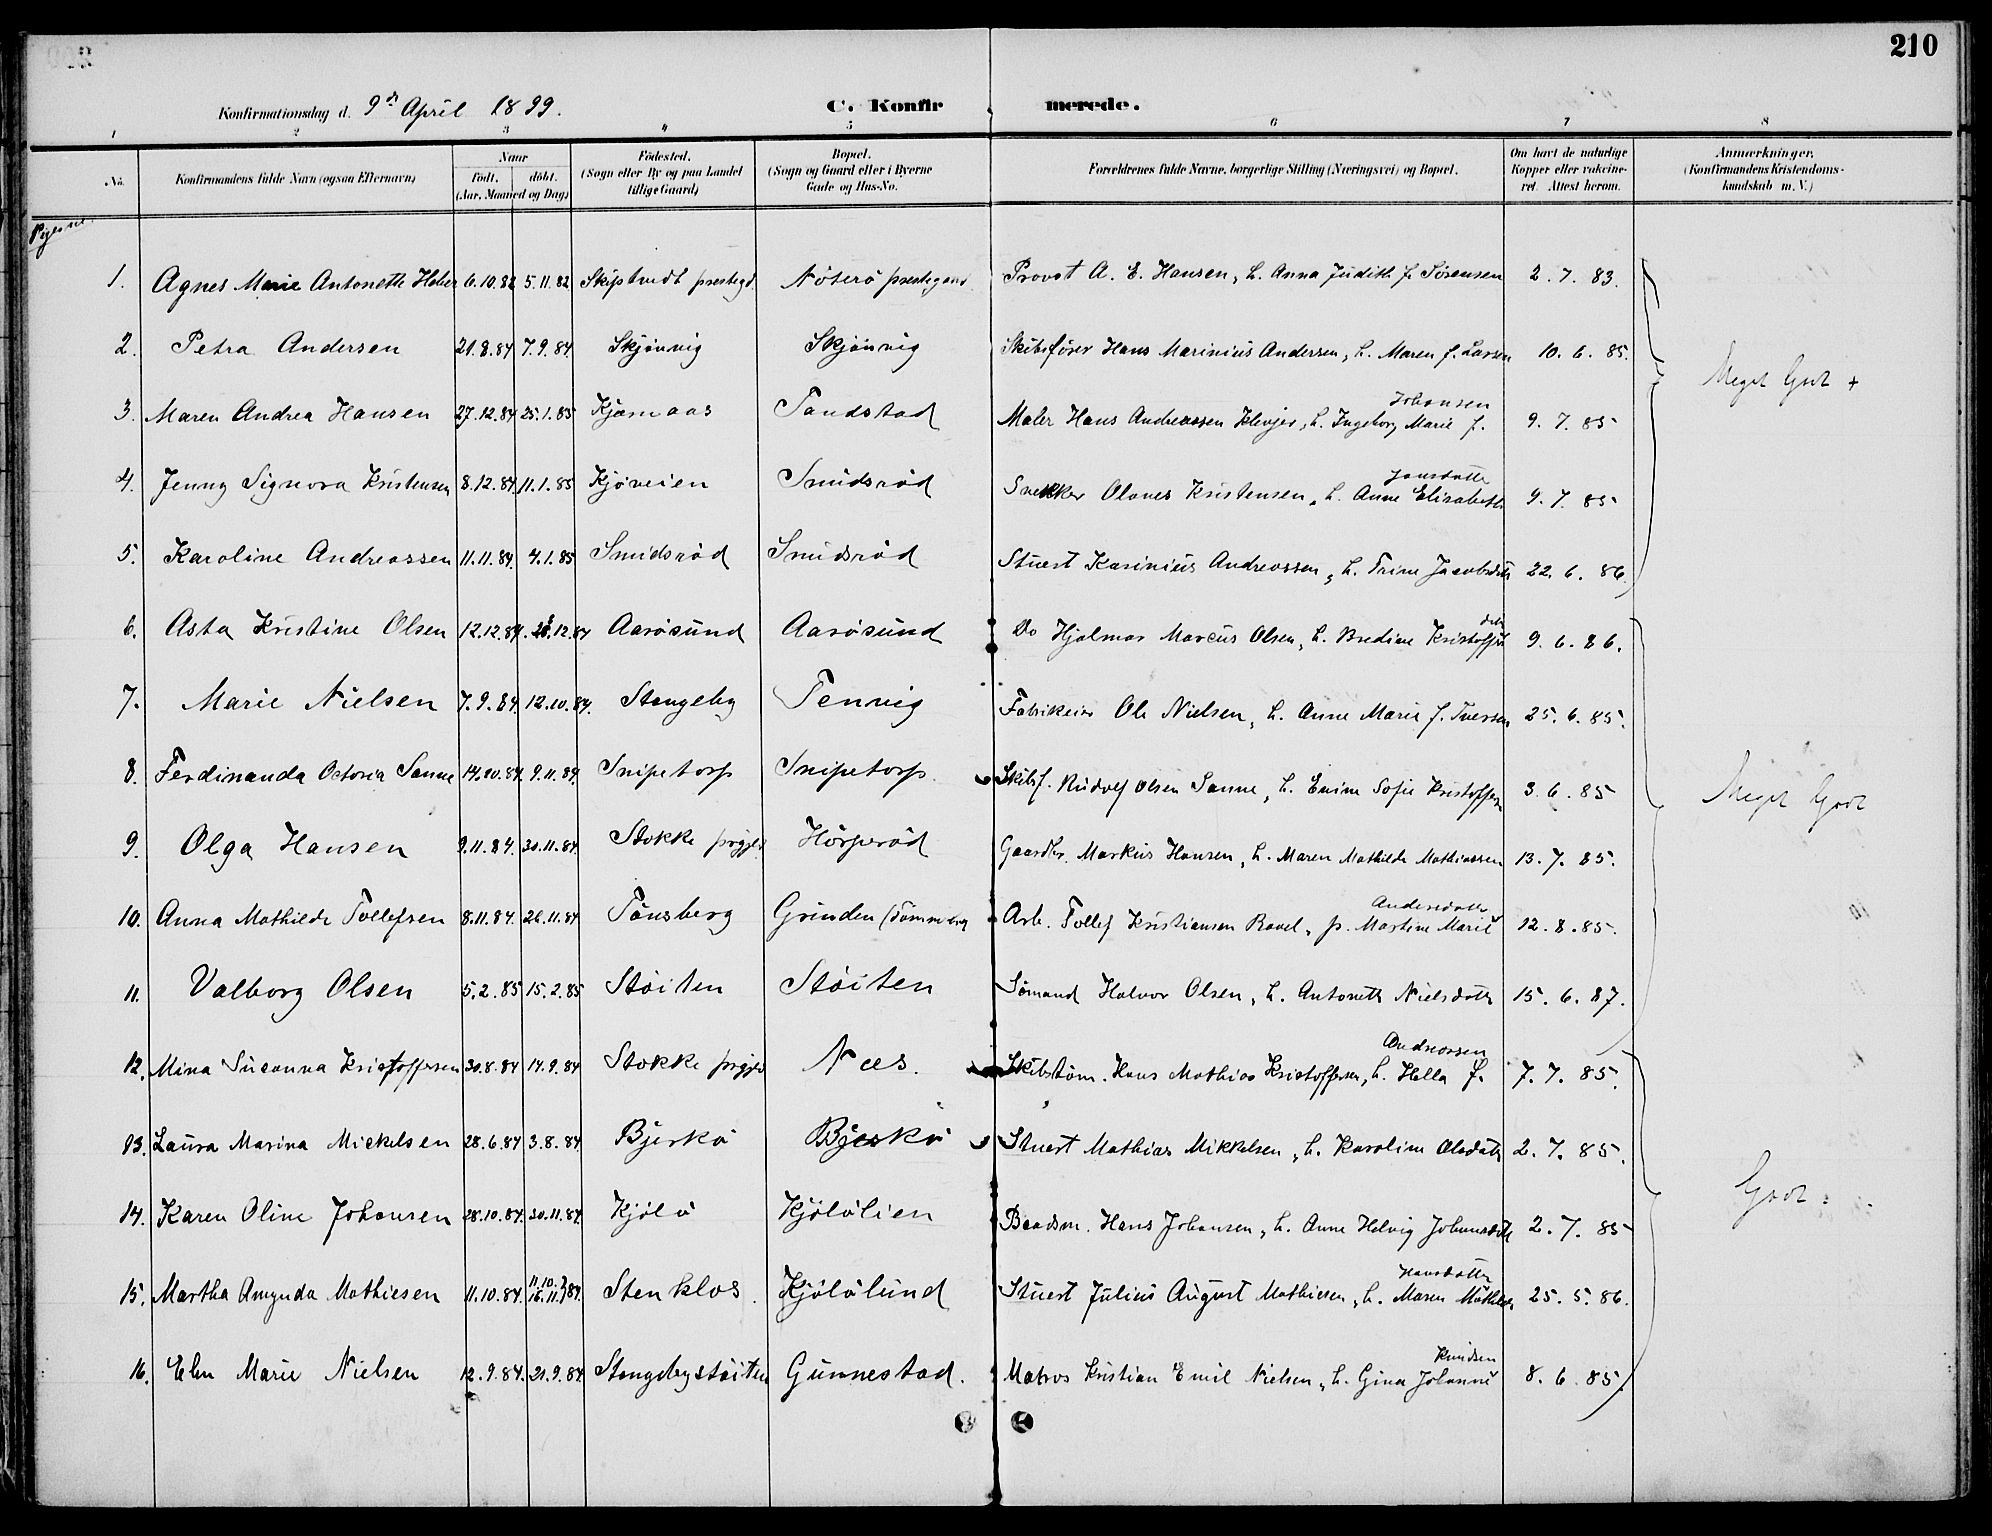 210
Konfirmationsdag d. 9de April 1899.
C. Konfirmerede.
1 2 3 4 5 6 7 8
No.
Konfirmandens fulde Navn (ogsaa Efternavn)
Naar
født. døbt.
(Aar, Maaned og Dag)
Fødested.
(Sogn eller By og paa Landet
tillige Gaard)
Bopæl.
(Sogn og Gaard eller i Byerne
Gade og Hus-No.
Forældrenes fulde Navne, borgerlige Stilling (Næringsvei) og Bopæl.
Om havt de naturlige
Kopper eller vakcine-
ret. Attest herom.
Anmærkninger.
(Konfirmandens Kristendoms-
kundskab m. V.)
Pigerne.
1. Agnes Marie Antonette 6.10.82 5.11.82 Skiptvedt prestegd. Nøterø prestegaard Provst A. E. Hansen, h. Anna Judith f. Sørensen 2.7.83.
2. Petra Andersen 21.8.84 7.9.84 Skjøvvig Skjøvvig Skibsfører Hans Marinius Andersen, h. Maren f. Larsen 10.6.85.
Meget Godt +
3. Maren Andrea Hansen 27.12.84 25.1.85 Kjærnaas Tandstad Maler Hans Andreassen Klevjer, h. Ingeborg Marie f. Johansen 9.7.85
4. Jenny Signora Kristensen 8.12.84 11.1.85 Kjøveien Smidsrød Snekker Olaves Kristensen, h. Anne Elisabeth Jansdatter 9.7.85
5. Karoline Andreassen 11.11.84. 4.1.85 Smidsrød Smidsrød Stuert Karinius Andreassen, h. Trine Jacobsdatt 22.6.86.
6. Asta Kristine Olsen 12.12.84. 28.12.84 Aarøsund Aarøsund Do Hjalmar Marcus Olsen, h. Brediane Kristoffersdtr 9.6.86.
7. Marie Nielsen 7.9.84. 12.10.84. Stangeby Tenvig Fabrikeier Ole Nielsen, h. Anne Marie f. Iversen 25.6.85.
8. Ferdinanda Octovia Sanne 14.10.84. 9.11.84. Snipetorp Snipetorp. Skibsf. Rudolf Olsen Sanne, h. Emine Sofie Kristoffers 3.6.85
Meget Godt
9. Olga Hansen 9.11.84. 30.11.84. Stokke prgjld Hørperød Gaardbr. Markus Hansen, h. Maren Mathilde Mathiassen 13.7.85.
10. Anna Mathilde Tollefsen 8.11.84. 26.11.84 Tønsberg Grinden Arb. Tollef Kristiansen Ravel, p. Martine Marie Andersdatter 12.8.85.
11. Valborg Olsen 5.2.85 15.2.85 Støiten Støiten Sømand Halvor Olsen, h. Antonette Nielsdatt 15.6.87.
12. Mina Susanna Kristoffersen 30.8.84 14.9.84 Stokke prgjld Nees. Skibstøm. Hans Mathias Kristoffersen, h. Hella f. Andreassen 7.7.85.
13. Laura Marina Mickelsen 28.6.84 3.8.84. Bjerkø Bjerkø Stuert Mathias Mikkelsen, h. Karoline Olsdatt 2.7.85.
Godt.
14. Karen Oline Johansen 28.10.84. 30.11.84. Kjølø Kjølølien Baadsm. Hans Johansen, h. Anne Helvig Johansdatt 2.7.85
15. Martha Amynda Mathiesen 11.10.84. 11.10. 16.11. 84. Stenklos. Kjøløslund Stuert Julius August Mathiesen, h. Maren Mathilde Hansdatter 25.5.86.
16. Elen Marie Nielsen 12.9.84. 21.9.84 Stangebystøiten Gunnestad. Matros Kristian Emil Nielsen, h. Gina Johanne Knudsen 8.6.85.